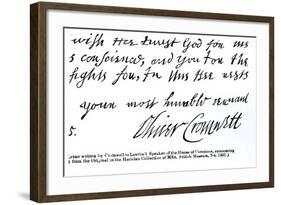 wish Her trust God for his
s conscience, and you for the
fights for, In this Hee rests
your most humble servant
Oliver Cromwell
5.
letter written by Cromwell to Lenthall, Speaker of the House of Commons, announcing
from the Original in the Harleian Collection of MSS. British Museum, No. 7502.)